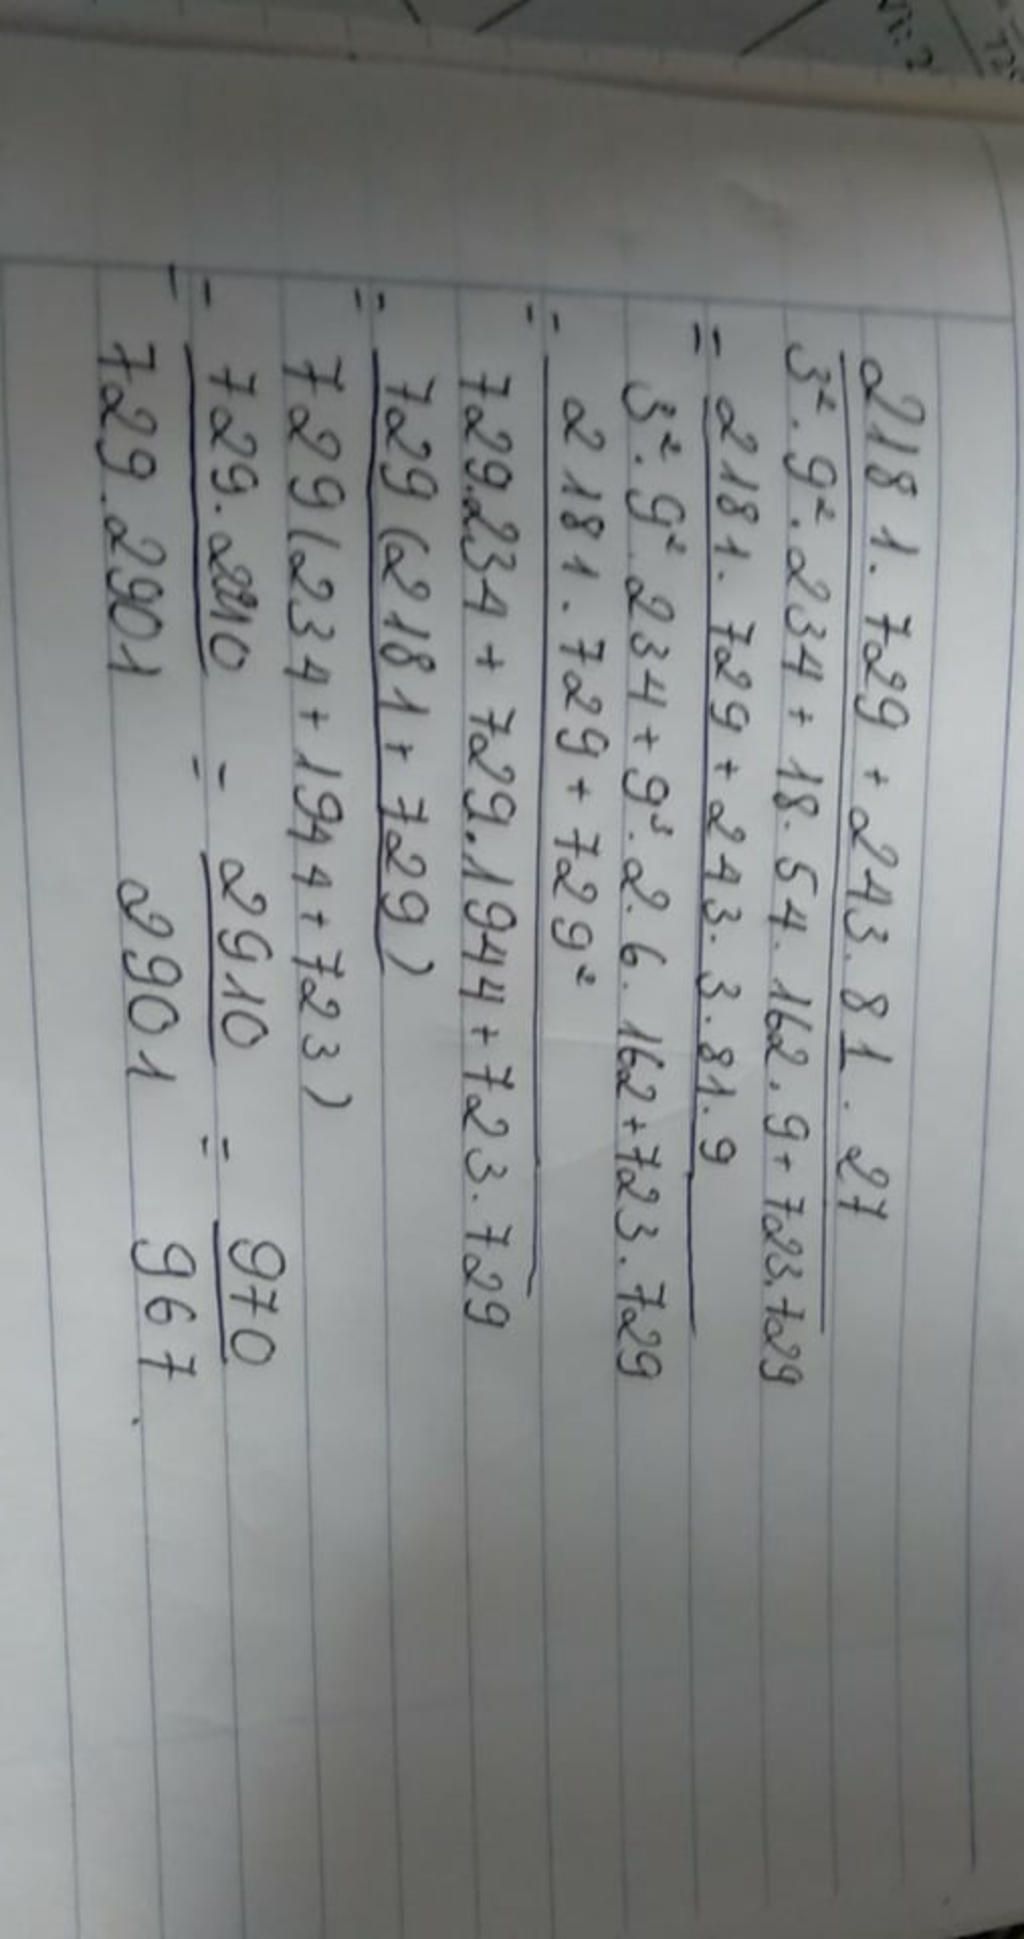 2181.729 + 243.81.27
3².9².234 + 18.54.162.9 + 723.729
= 2181.729 + 243.3.81.9
3².9².234 + 9³.2.6.162 + 723.729
= 2181.729 + 729²
729.234 + 729.1944 + 723.729
= 729(2181 + 729)
729(234 + 1944 + 723)
= 729.2910 = 2910 = 970
729.2901 2901 967